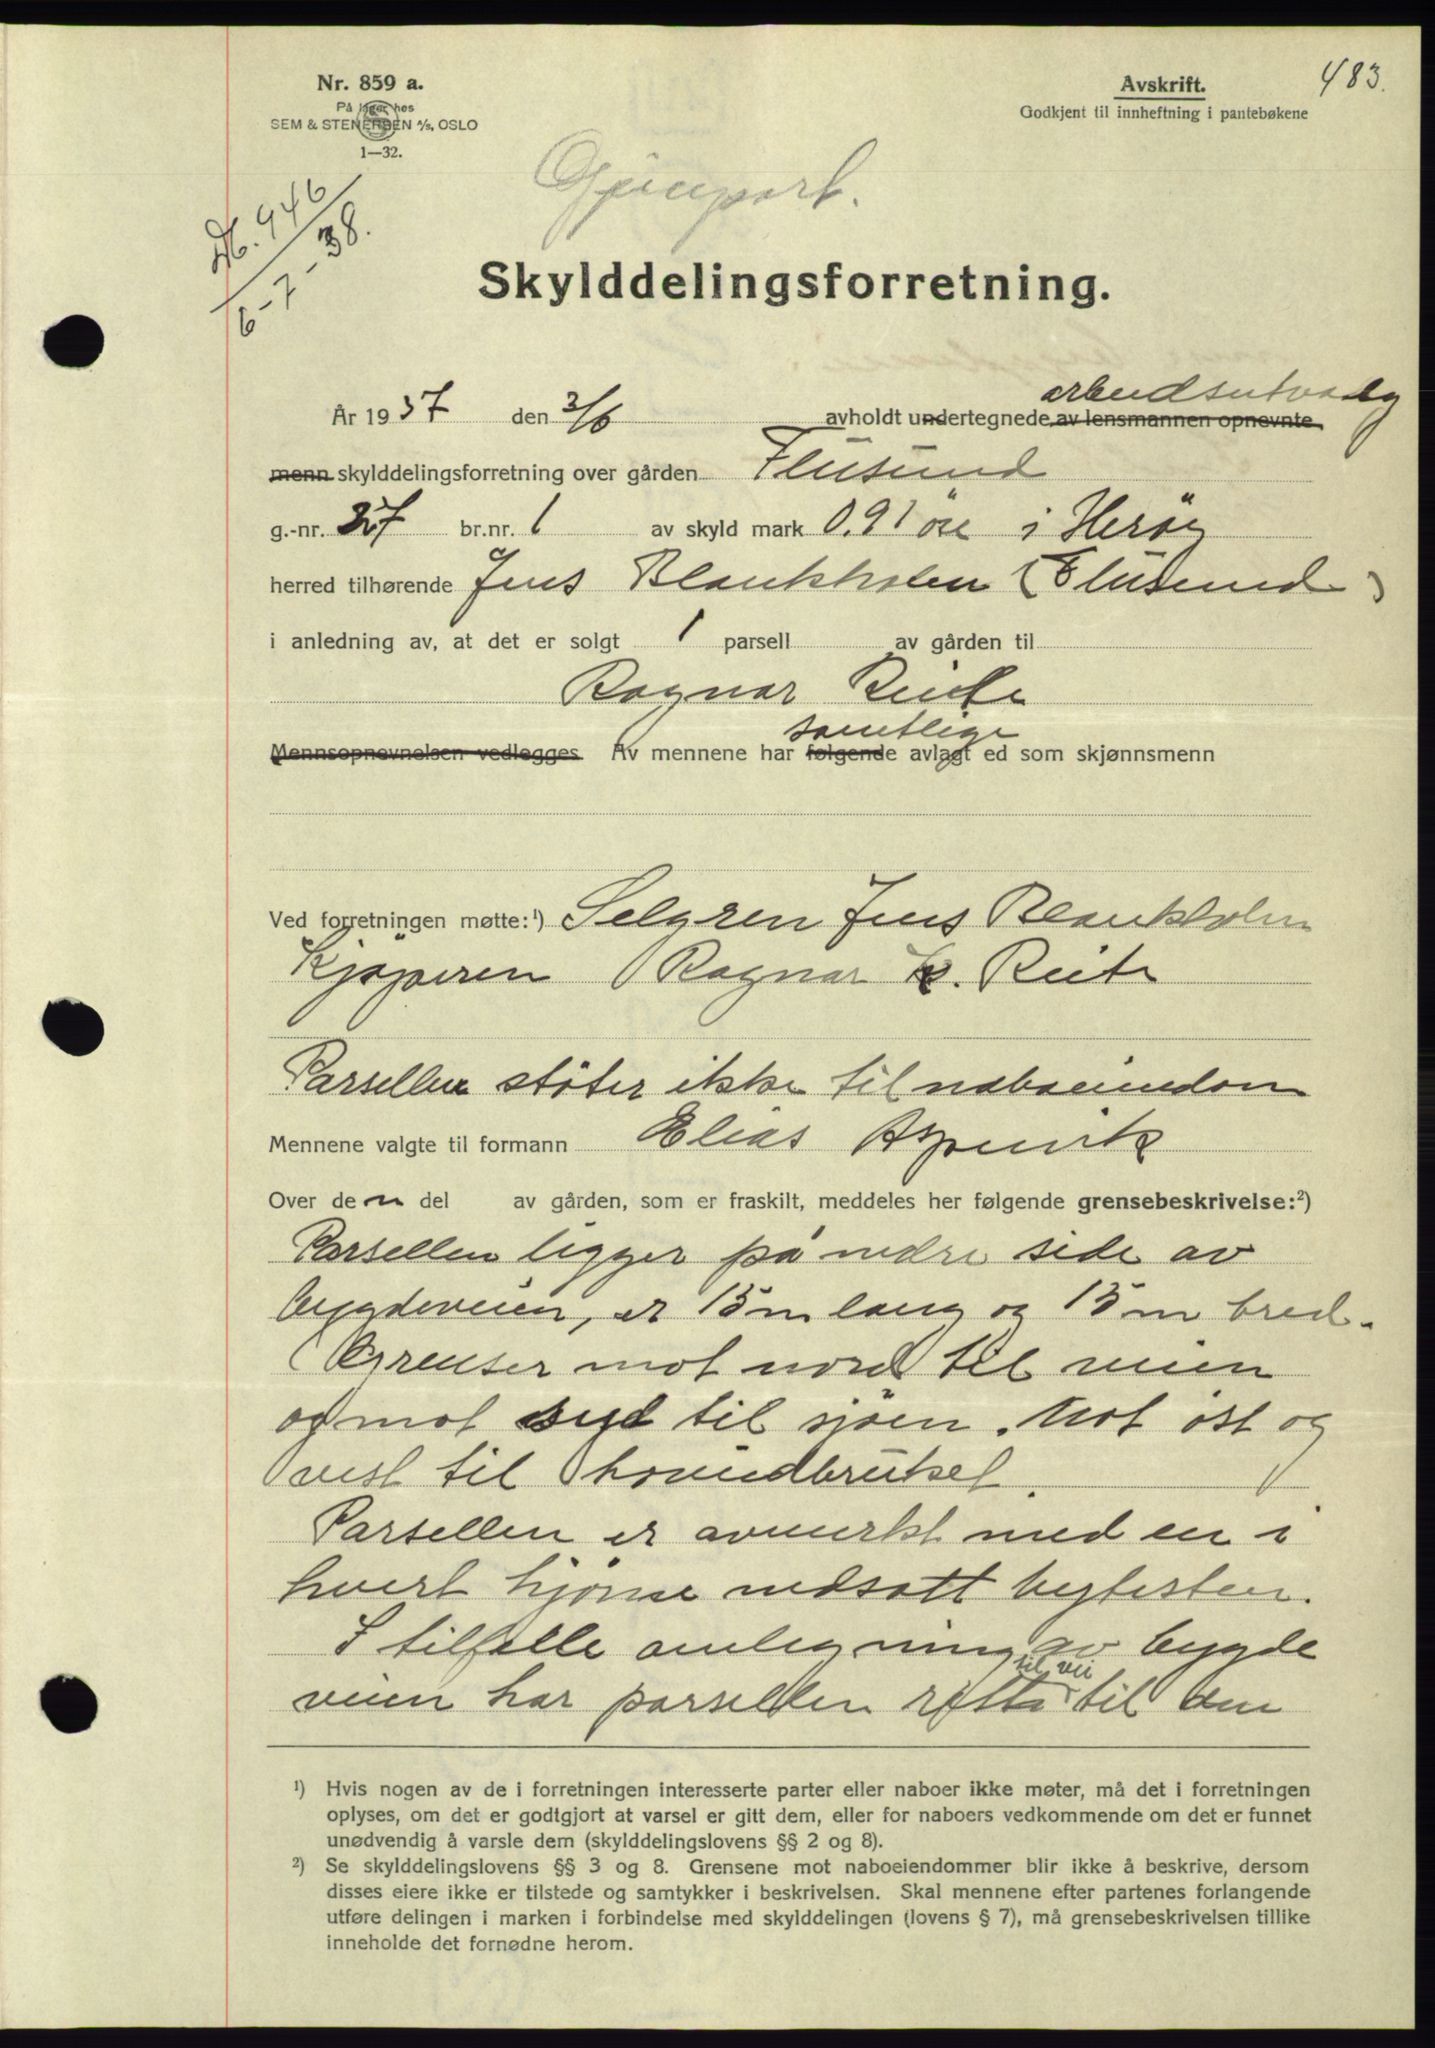 483.
Nr. 859 a.
På lager hos
SEM & STENERSEN A/S, OSLO
1—32.
Avskrift.
Godkjent til innheftning i pantebøkene
Gjenpart.
Nr. 946
6-7-38.
Skylddelingsforretning.
arbeidsutvalg
År 1937 den 3/6 avholdt undertegnede av lensmannen opnevnte
menn skylddelingsforretning over gården Flusund
g.-nr. 37 br.nr. 1 av skyld mark 0.91 öre i Herøy
herred tilhørende Jens Blankholm (Flusund)
i anledning av, at det er solgt 1 parsell av gården til
Ragnar Reite
samtlige
Mennsopnevnelsen vedlegges Av mennene har følgende avlagt ed som skjønnsmenn
Ved forretningen møtte:¹) Selgeren Jens Blankholm
Kjøperen Ragnar K. Reite
Parsellen støter ikke til naboeiendom
Mennene valgte til formann Elias Aspevik
Over den del av gården, som er fraskilt, meddeles her følgende grensebeskrivelse:²)
Parsellen ligger på nedre side av
bygdeveien, er 15 m lang og 15 m bred.
Grenser mot nord til veien
og mot syd til sjøen. Mot öst og
vest til hovedbruket.
Parsellen er avmerkt med en i
hvert hjørne nedsatt bytesten.
I tilfelle omlegning av bygde
til vei
veien har parsellen rett til den
¹) Hvis nogen av de i forretningen interesserte parter eller naboer ikke møter, må det i forretningen
oplyses, om det er godtgjort at varsel er gitt dem, eller for naboers vedkommende om det er funnet
unødvendig å varsle dem (skylddelingslovens §§ 2 og 8).
²) Se skylddelingslovens §§ 3 og 8. Grensene mot naboeiendommer blir ikke å beskrive, dersom
disses eiere ikke er tilstede og samtykker i beskrivelsen. Skal mennene efter partenes forlangende
utføre delingen i marken i forbindelse med skylddelingen (lovens § 7), må grensebeskrivelsen tillike
inneholde det fornødne herom.